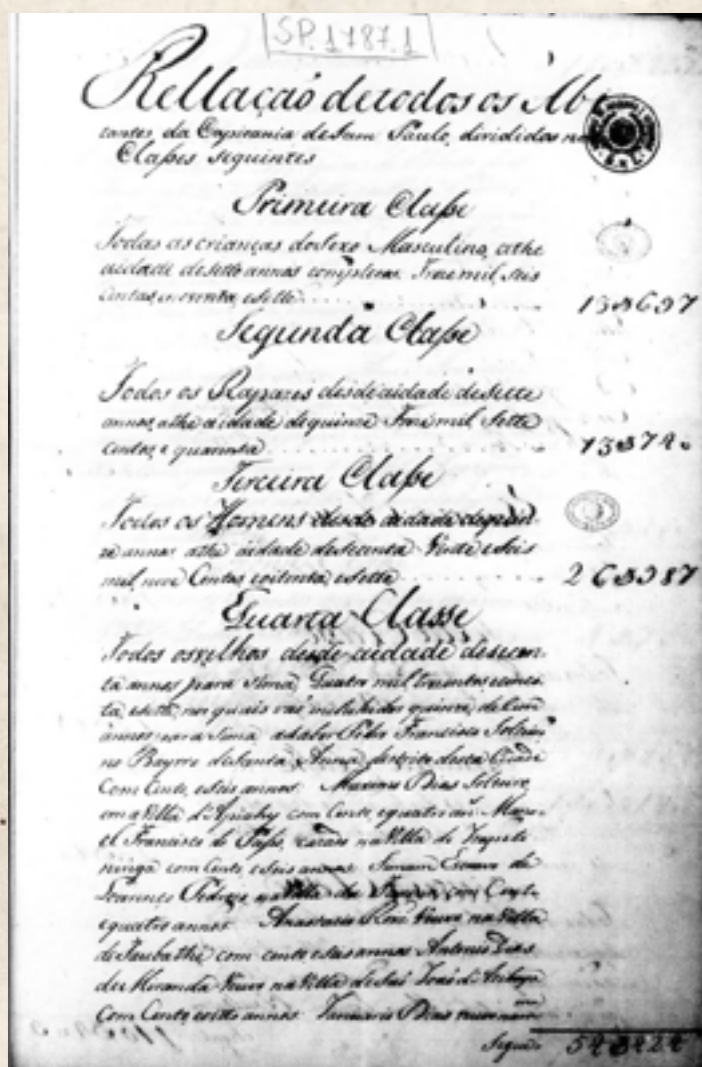 SP.1787.1
Rellaçaõ de todos os Ab
tantes da Capitania de Sam Paulo, divididos na
Claßes seguintes
Primeira Claße
Todas as crianças do Sexo Masculino, athe
aidade de sette annos completos. Treze mil, seis
Centas, e noventa, e sette
13$697
Segunda Claße
Todos os Rapazes desde aidade de sette
annos, athe a idade de quinze Treze mil, sette
centos, e quarenta
13$740
Terceira Claße
Todos os Homens desde aidade de quin-
ze annos athe aidade de sesenta Vinte e Seis
mil, nove Centos, e oitenta, e sette
26$987
Quarta Classe
Todos os velhos desde aidade de sesen-
ta annos para sima, Quatro mil
ta, nos quais vaõ incluhidos quinze, de Cem
annos para sima a saber Pedro Francisco Solteiro
no Bayrro de Santa Anna, destrito desta Cidade
Com Cento, e seis annos. Dias Solteiro
em a Villa d'Apiahy com Cento, e quatro an.ˢ Mano-
el Francisco de cazado na Villa de
ninga com Cento, e seis annos
Lourenço na Villa de com Cento
e quatro annos. Viuvo na Villa
de Taubathe com cento, e seis annos Antonio Dias
de Miranda Viuvo na Villa de Saõ
Com Cento, e oito annos. Januario Dias
Segue
54$424